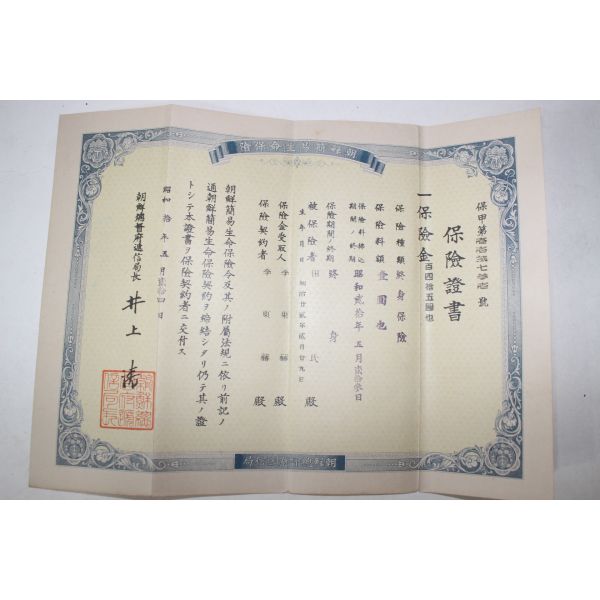 朝鮮簡易生命保險
保甲第壹壹貳七參壹號
保險證書
一保險金百四拾五圓也
保險種類終身保險
保險料額壹圓也
保險料拂込期間ノ終期昭和貳拾年五月貳拾參日
保險期間ノ終期終身
被保險者 氏殿
生年月日明治廿貳年貳月廿九日
保險金受取人李東 殿
保險契約者李東 殿
朝鮮簡易生命保險令及其ノ附屬法規ニ依リ前記ノ
通朝鮮簡易生命保險契約ヲ締結シタリ仍テ其ノ證
トシテ本證書ヲ保險契約者ニ交付ス
昭和拾年五月貳拾四日
朝鮮總督府遞信局長 井上清
朝鮮總督府遞信局